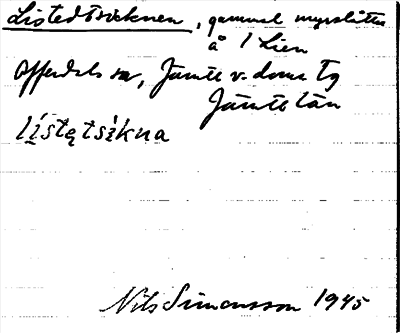 Listedtsöknen, gammal myrslåtter
å 1 Lien
Offerdals sn, Jämtl v. doms Tg
Jämtl län
lístętsìkna
Nils Simonsson 1945